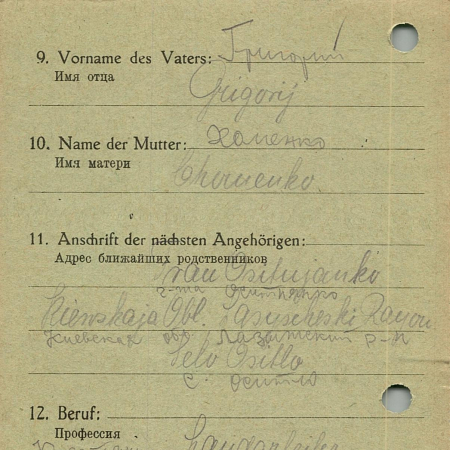 9. Vorname des Vaters: Григорий
Имя отца
Grigorij
10. Name der Mutter: Хоменко
Имя матери
Chomenko.
11. Anschrift der nächsten Angehörigen:
Адрес ближайших родственников
Frau Ositnjanko
г-жа Оситнянко
Kiewskaja Obl. Rayon
Киевская обл. р-н
Selo Ositlo
с. Осітло
12. Beruf:
Профессия